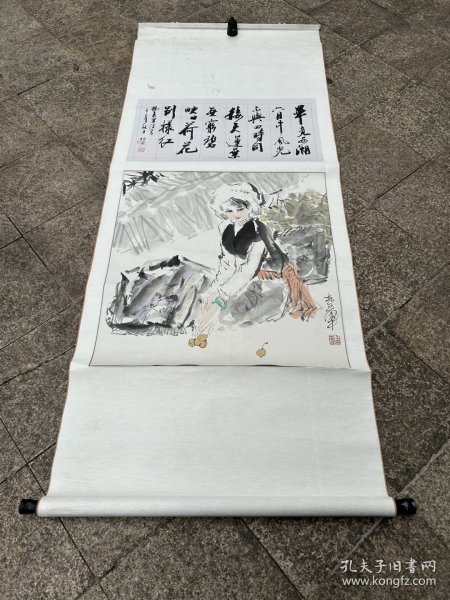 畢竟西湖
六月中風光
不與四時同
接天蓮葉
無窮碧
映日荷花
別樣紅
孔夫子旧书网
www.kongfz.com